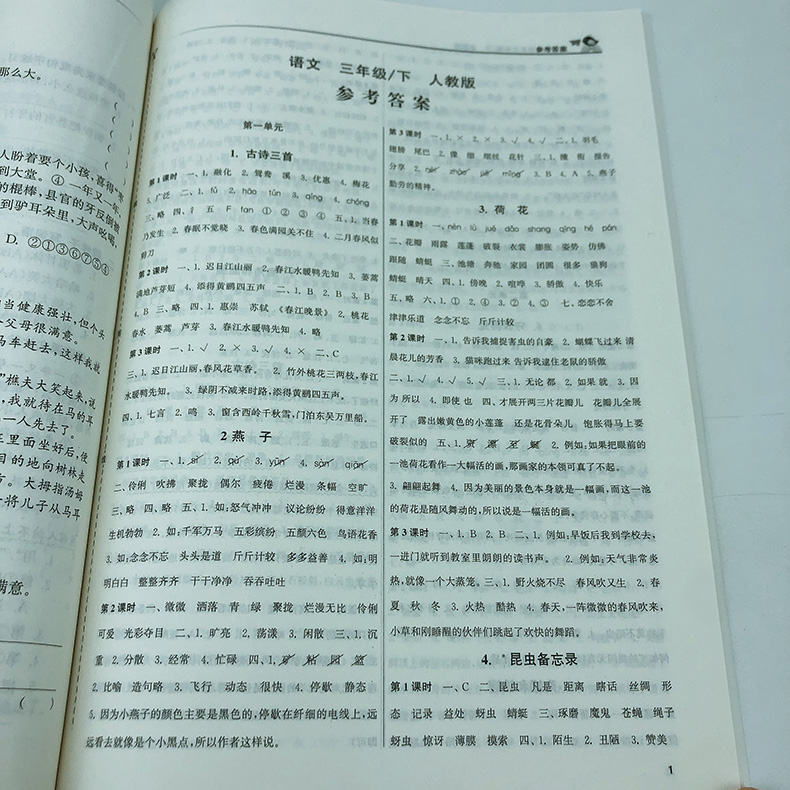 那么大。
人盼着要个小孩，喜得“寒
到大堂。④ 一年又一年，
的棍棒，县官的牙反倒被
到驴耳朵里，大声吆喝，
D. ②①③⑥⑦⑤④
当健康强壮，但个头
父母很满意。
马车赶去，这样我就
”樵夫大笑起来，说
，我就待在马的耳
一人先去了。
王里面坐好后，使
目的地向树林走
。大拇指汤姆
将儿子从马耳
满意。
参考答案
语文 三年级/下 人教版
参考答案
第一单元
1. 古诗三首
第1课时 一、1. 融化 2. 鸳鸯 溪 3. 优惠 4. 梅花
5. 广泛 二、1. fú 2. hāo tún 3. qíng 4. chóng
三、略 四、氵 五 F tan ① ② ③ ④ 五、1. 当春
乃发生 2. 春眠不觉晓 3. 春色满园关不住 4. 二月春风似
剪刀
第2课时 一、1. 迟日江山丽 2. 春江水暖鸭先知 3. 蒌蒿
满地芦芽短 4. 添得黄鹂四五声 二、1. B 2. B 3. B
4. B 三、略 四、1. 惠崇 苏轼 《春江晚景》 2. 桃花
春水 蒌蒿 芦芽 3. 春江水暖鸭先知 4. 略
第3课时 一、1. √ 2. × 3. √ 4. × 二、C
三、1. 迟日江山丽，春风花草香。 2. 竹外桃花三两枝，春江
水暖鸭先知。 3. 绿阴不减来时路，添得黄鹂四五声。
四、1. 七言 2. 鸣 3. 窗含西岭千秋雪，门泊东吴万里船。
2 燕 子
第1课时 一、1. sì 2. gǔ 3. yūn 4. sàn qiān
二、伶俐 吹拂 聚拢 偶尔 疲倦 烂漫 条幅 空旷
三、略 四、略 五、1. 如：怒气冲冲 议论纷纷 得意洋洋
生机勃勃 2. 如：千军万马 五彩缤纷 五颜六色 鸟语花香
3. 如：念念不忘 头头是道 斤斤计较 多多益善 4. 如：明
明白白 整整齐齐 干干净净 吞吞吐吐
第2课时 一、微微 洒落 青 绿 聚拢 烂漫无比 伶俐
可爱 光彩夺目 二、1. 旷亮 2. 荡漾 3. 闲散 三、1. 沉
重 2. 分散 3. 经常 4. 忙碌 四、1. 矿 粘 园 篮
2. 比喻 造句略 3. 飞行 动态 很快 4. 停歇 静态
5. 因为小燕子的颜色主要是黑色的，停歇在纤细的电线上，远
远看去就像是个小黑点，所以作者这样说。
第3课时 一、1. × 2. × 3. √ 4. √ 二、1. 羽毛
翅膀 尾巴 2. 像 细 细丝 花针 三、1. 撞 衔 报告
分享 3. B 4. A 5. 燕子
勤劳的精神。
3. 荷 花
第1课时 一、nèn lù jué dǎo shang qǐng hé pán
二、花瓣 雨露 莲蓬 破裂 衣裳 膨胀 姿势 仿佛
跟随 蜻蜓 三、池塘 奔驰 家园 团圆 很多 猿狗
蜻蜓 晴天 四、1. 傍晚 2. 喧哗 3. 骄傲 4. 快乐
五、略 六、1. ① 2. ④ 3. ② 4. ③ 七、恋恋不舍
津津乐道 念念不忘 斤斤计较
第2课时 一、1. 告诉我捕捉害虫的自豪 2. 蝴蝶飞过来 清
晨花儿的芳香 3. 猫咪跑过来 告诉我逮住老鼠的骄傲
二、1. √ 4. √ 5. √ 三、1. 无论 都 2. 如果 就 3. 因
为 所以 4. 即使 也 四、才展开两三片花瓣儿 花瓣儿全展
开了 露出嫩黄色的小莲蓬 还是花骨朵儿 饱胀得马上要
破裂似的 2. 例如：如果把眼前的
一池荷花看作一大幅活的画，那画家的本领可真了不起。
3. 翩翩起舞 4. 因为美丽的景色本身就是一幅画，而这一池
的荷花是随风舞动的，所以说是一幅活的画。
第3课时 一、1. B 2. B 二、1. 例如：早饭后我到学校去，
一进门就听到教室里朗朗的读书声。 2. 例如：天气非常炎
热，就像一个大蒸笼。三、1. 野火烧不尽 春风吹又生 2. 春
夏 秋 冬 3. 火热 酷热 4. 春天，一阵微微的春风吹来，
小草和刚睡醒的伙伴们跳起了欢快的舞蹈。
4. *昆虫备忘录
第1课时 一、C 二、昆虫 凡是 距离 瞎话 丝绸 形
态 记录 益处 蚜虫 蜻蜓 三、琢磨 魔鬼 苍蝇 绳子
蚜虫 惊讶 薄膜 摸索 四、1. 陌生 2. 丑陋 3. 赞美
1